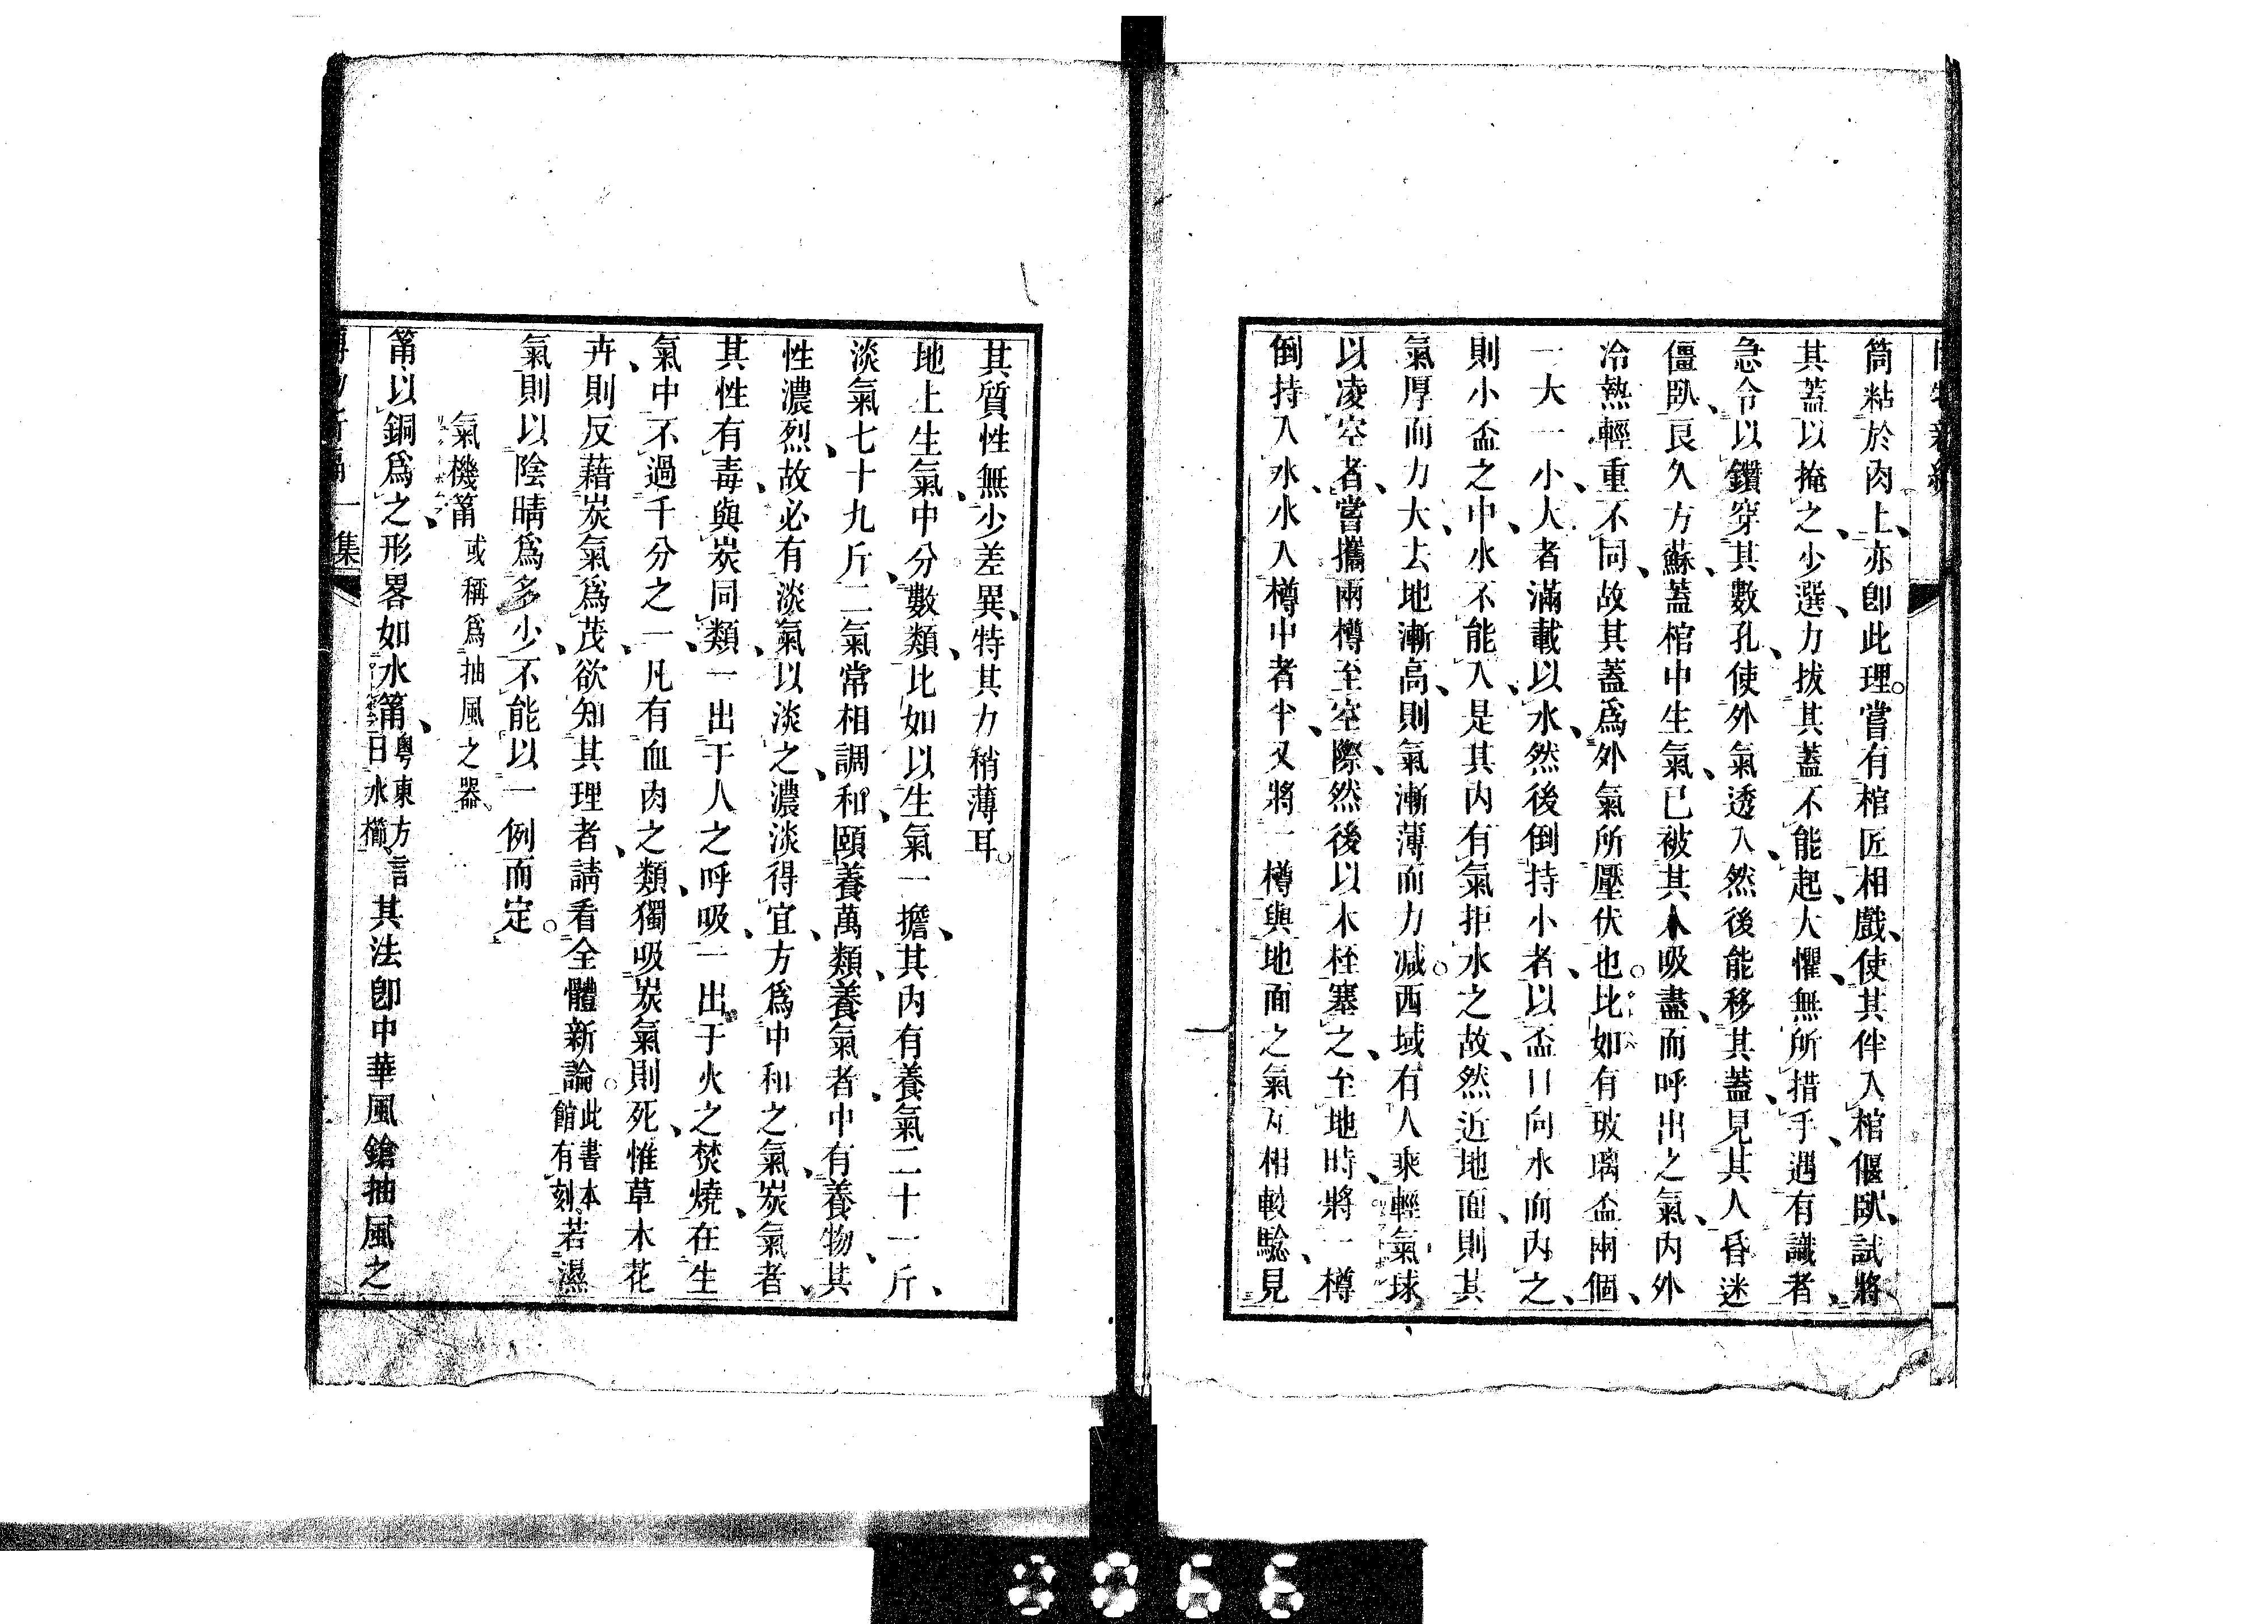 筒粘於肉上、亦卽此理。嘗有棺匠相戲、使其伴入棺偃臥、試將
其蓋以掩之、少選、力拔其蓋不能起、大懼、無所措手、遇有識者、
急令以鑽穿其數孔、使外氣透入、然後能移其蓋、見其人昏迷
僵臥、良久方蘇、蓋棺中生氣、已被其人吸盡、而呼出之氣、內外
冷熱輕重不同、故其蓋爲外氣所壓伏也。比如有玻璃盃兩個、
一大一小、大者滿載以水、然後倒持小者、以盃口向水而內之、
則小盃之中、水不能入、是其內有氣拒水之故、然近地面、則其
氣厚而力大、去地漸高、則氣漸薄而力減。西域有人乘輕氣球
以凌空者、嘗攜兩樽至空際、然後以木枉塞之、至地時、將一樽
倒持入水、水入樽中者半、又將一樽與地面之氣互相較騐、見
其質性無少差異、特其力稍薄耳。
地上生氣、中分數類、比如以生氣一擔、其內有養氣二十一斤、
淡氣七十九斤、二氣常相調和、頤養萬類、養氣者、中有養物、其
性濃烈、故必有淡氣以淡之、濃淡得宜、方爲中和之氣、炭氣者、
其性有毒、與炭同類、一出于人之呼吸、一出于火之焚燒、在生
氣中不過千分之一、凡有血肉之類、獨吸炭氣則死、惟草木花
卉、則反藉炭氣爲茂、欲知其理者、請看全體新論。此書本館有刻、若濕
氣則以陰晴爲多少、不能以一例而定。
氣機筩 或稱爲抽風之器。
筩以銅爲之、形畧如水筩、粵東方言曰水櫛、其法卽中華風鎗抽風之
一集
0066